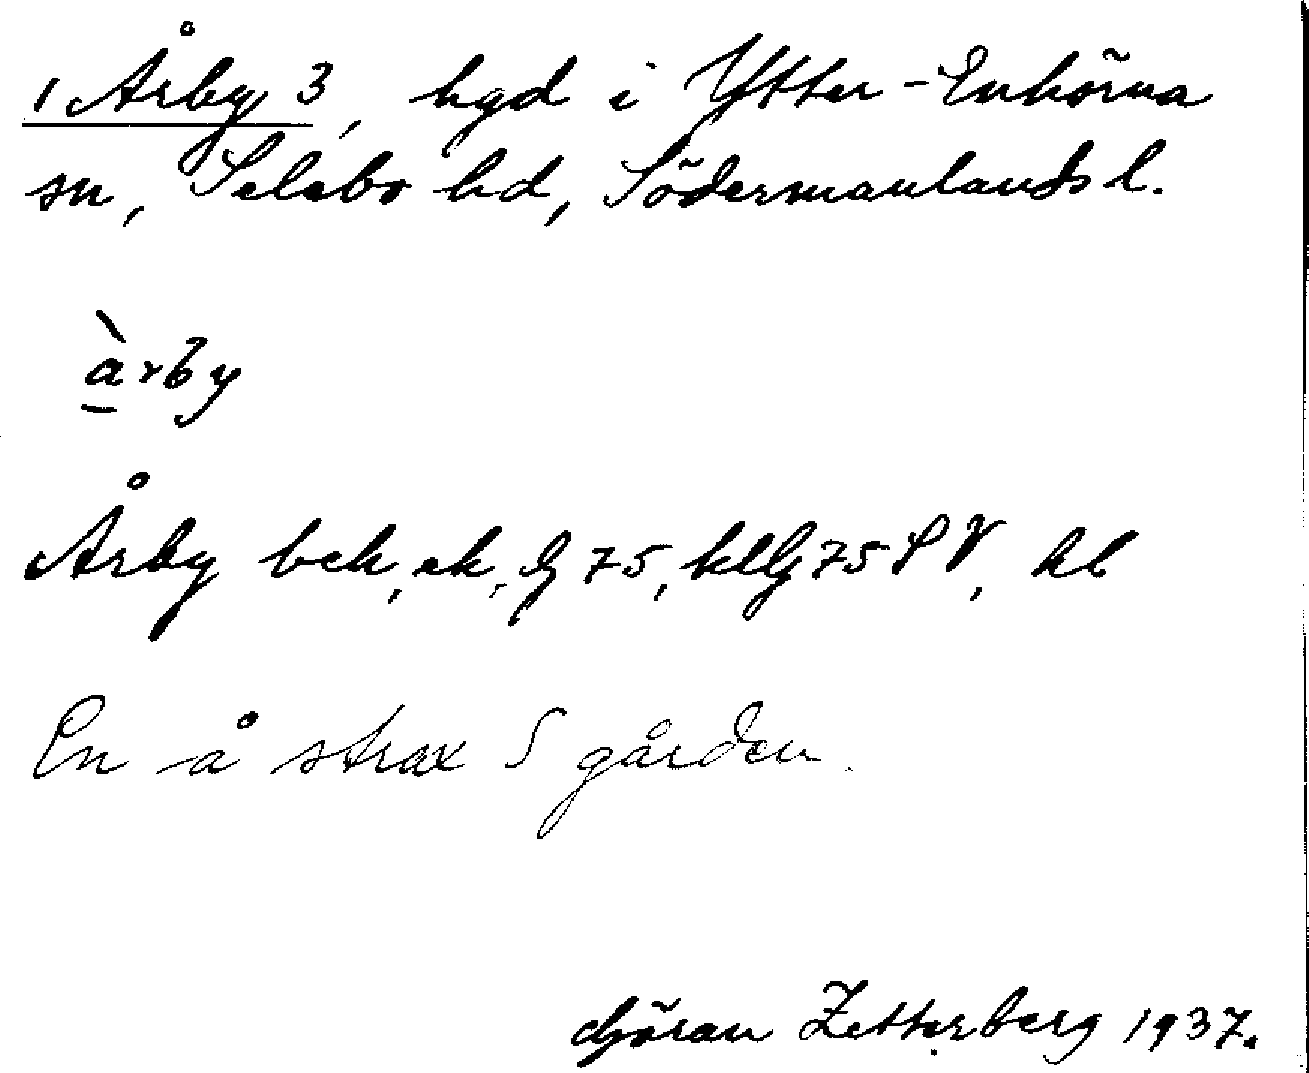 1 Årby 3, hgd i Ytter-Enhörna
sn, Selebo hd, Södermanlands l.
àrby
Årby bek, ek, G 75, kllg 75 S V, kl
En å strax S gården.
Göran Zetterberg 1937.